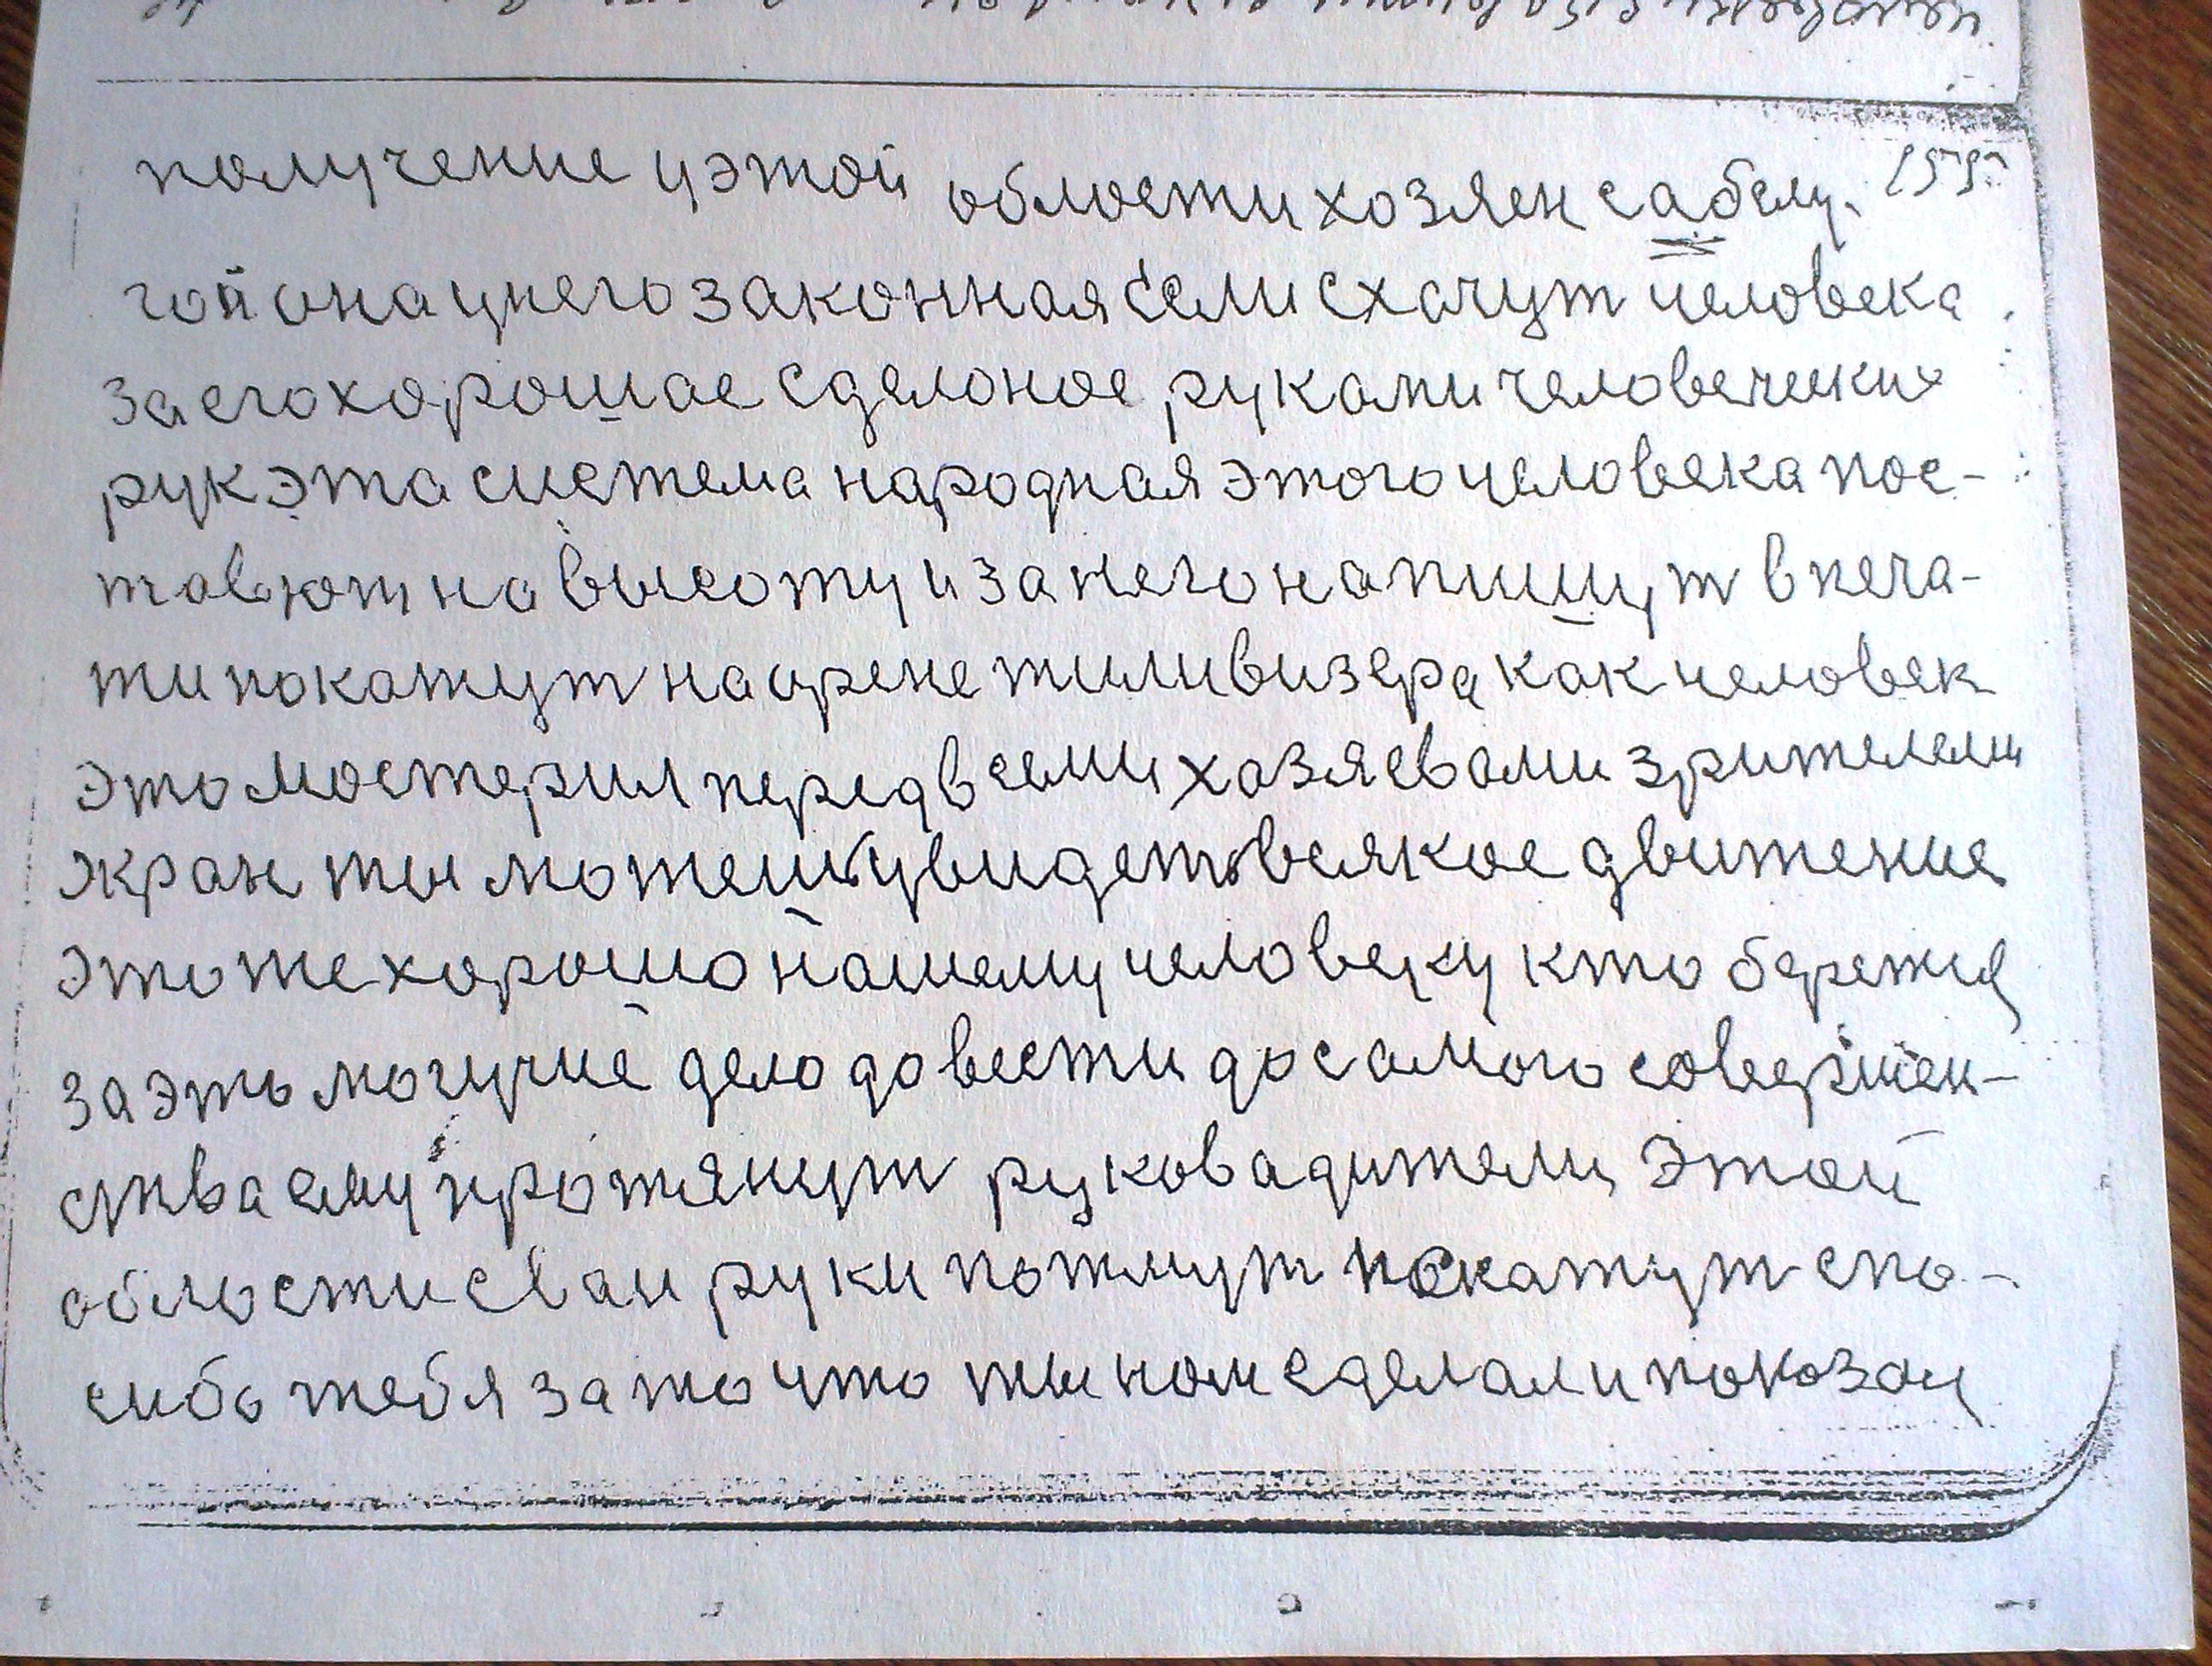 получение у этой облости хозяен са белу. 155
гой она унего законная если схачут человека
за его хорошае сделоное руками человечиких
рук эта система народная этого человека пос-
тавют на высоту и за него напишут в печа-
ти покажут на арене тиливизера как человек
это мостерил перед всеми хозяевами зрителеми
экран ты можешь увидеть всякое движение
это же хорошо нашему человеку кто
за это могучие дело довести до самого совершен-
ства ему протянут руковадители этой
облости сваи руки пожмут покажут спо-
сибо тебя за то что ты нам сделал и показал